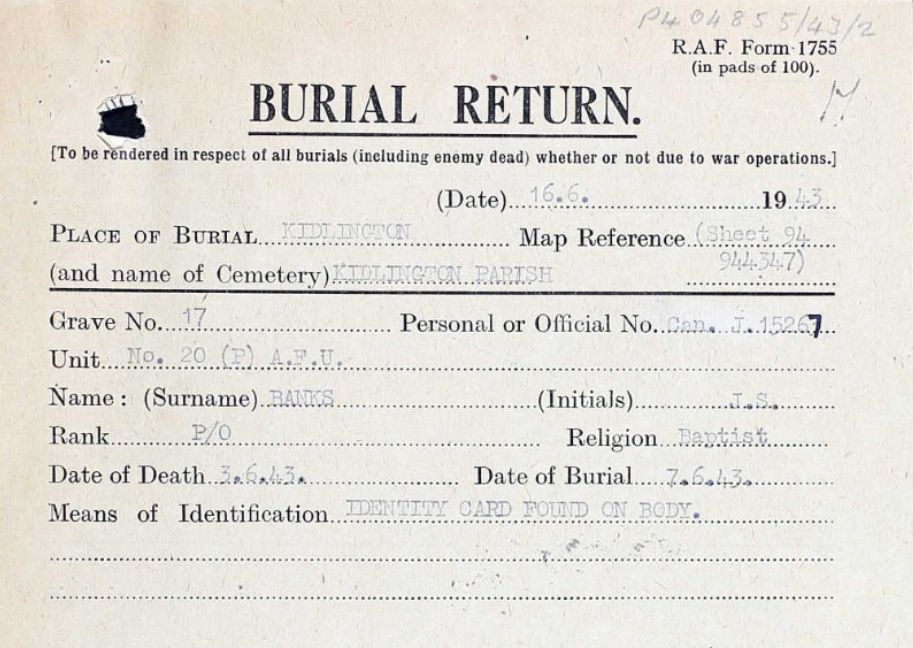 P404855/43/2
R.A.F. Form 1755
(in pads of 100).
BURIAL RETURN.
[To be rendered in respect of all burials (including enemy dead) whether or not due to war operations.]
(Date) 16.6. 1943.
PLACE OF BURIAL KIDLINGTON Map Reference (Sheet 94
(and name of Cemetery) KIDLINGTON PARISH 944347)
Grave No. 17 Personal or Official No. Can. J.15267
Unit No. 20 (P) A.F.U.
Name: (Surname) BANKS (Initials) J.S.
Rank P/O Religion Baptist
Date of Death 3.6.43. Date of Burial 7.6.43.
Means of Identification IDENTITY CARD FOUND ON BODY.